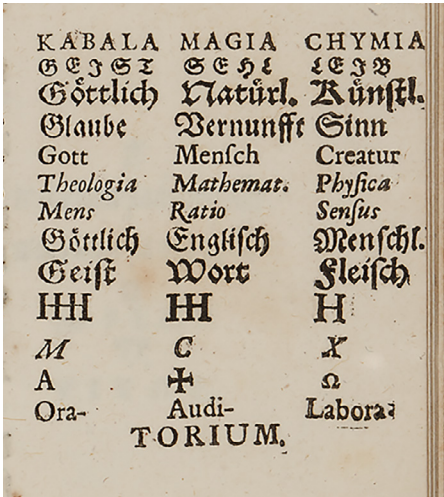 KABALA MAGIA CHYMIA
GEIST SEHL LEIB
Göttlich Natürl. Künſtl.
Glaube Vernunfft Sinn
Gott Menſch Creatur
Theologia Mathemat. Phyſica
Mens Ratio Senſus
Göttlich Engliſch Menſchl.
Geiſt Wort Fleiſch
HHH HH H
M C X
A ✠ Ω
Ora- Audi- Labora-
TORIUM.